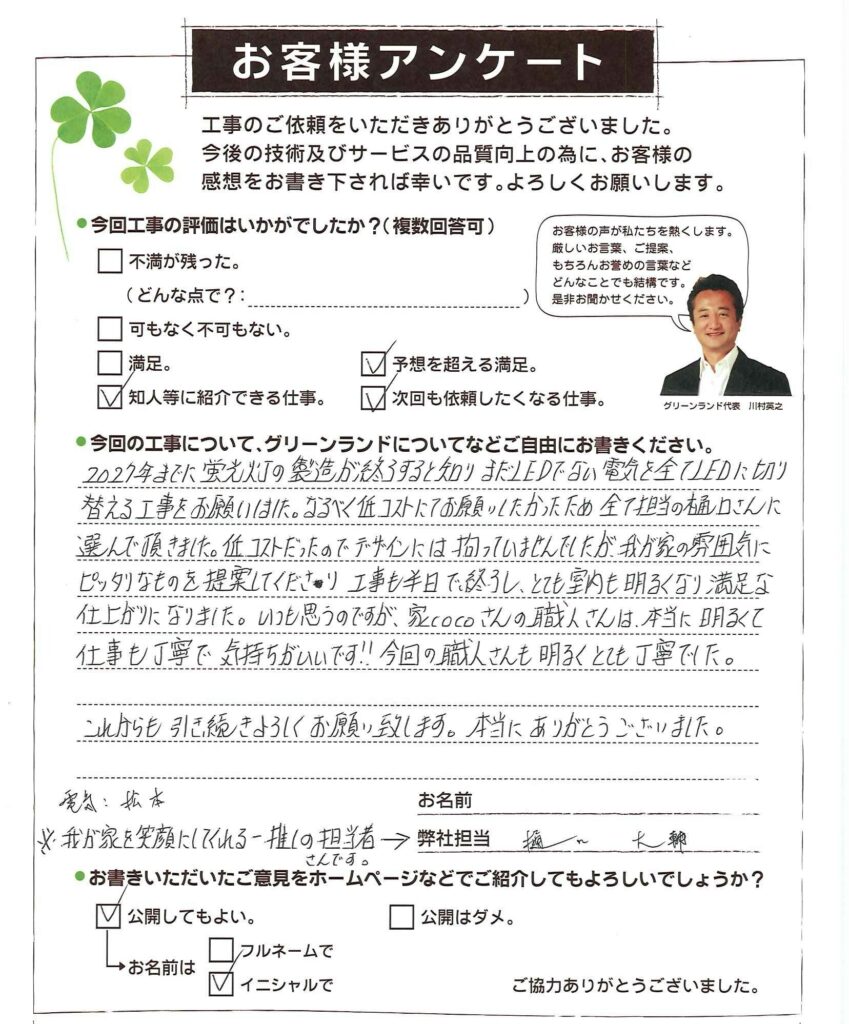 お客様アンケート
工事のご依頼をいただきありがとうございました。
今後の技術及びサービスの品質向上の為に、お客様の
感想をお書き下されば幸いです。よろしくお願いします。
今回工事の評価はいかがでしたか？（複数回答可）
不満が残った。
（どんな点で？：　）
可もなく不可もない。
満足。
予想を超える満足。
知人等に紹介できる仕事。
次回も依頼したくなる仕事。
お客様の声が私たちを熱くします。
厳しいお言葉、ご提案、
もちろんお誉めの言葉など
どんなことでも結構です。
是非お聞かせください。
グリーンランド代表　川村英之
今回の工事について、グリーンランドについてなどご自由にお書きください。
2027年までに蛍光灯の製造が終了すると知りまだLEDでない電気を全てLEDに切り
替える工事をお願いしました。なるべく低コストにてお願いしたかったため全て担当の樋口さんに
選んで頂きました。低コストだったのでデザインには拘っていませんでしたが、我が家の雰囲気に
ピッタリなものを提案してくださり 工事も半日で終了し、とても室内も明るくなり満足な
仕上がりになりました。いつも思うのですが、家cocoさんの職人さんは、本当に明るくて
仕事も丁寧で気持ちがいいです!! 今回の職人さんも明るくとても丁寧でした。
これからも引き続きよろしくお願い致します。本当にありがとうございました。
電気：松本
お名前
※我が家を笑顔にしてくれる一推しの担当者→
さんです。
弊社担当 樋口 大
お書きいただいたご意見をホームページなどでご紹介してもよろしいでしょうか？
公開してもよい。
公開はダメ。
お名前は
フルネームで
イニシャルで
ご協力ありがとうございました。